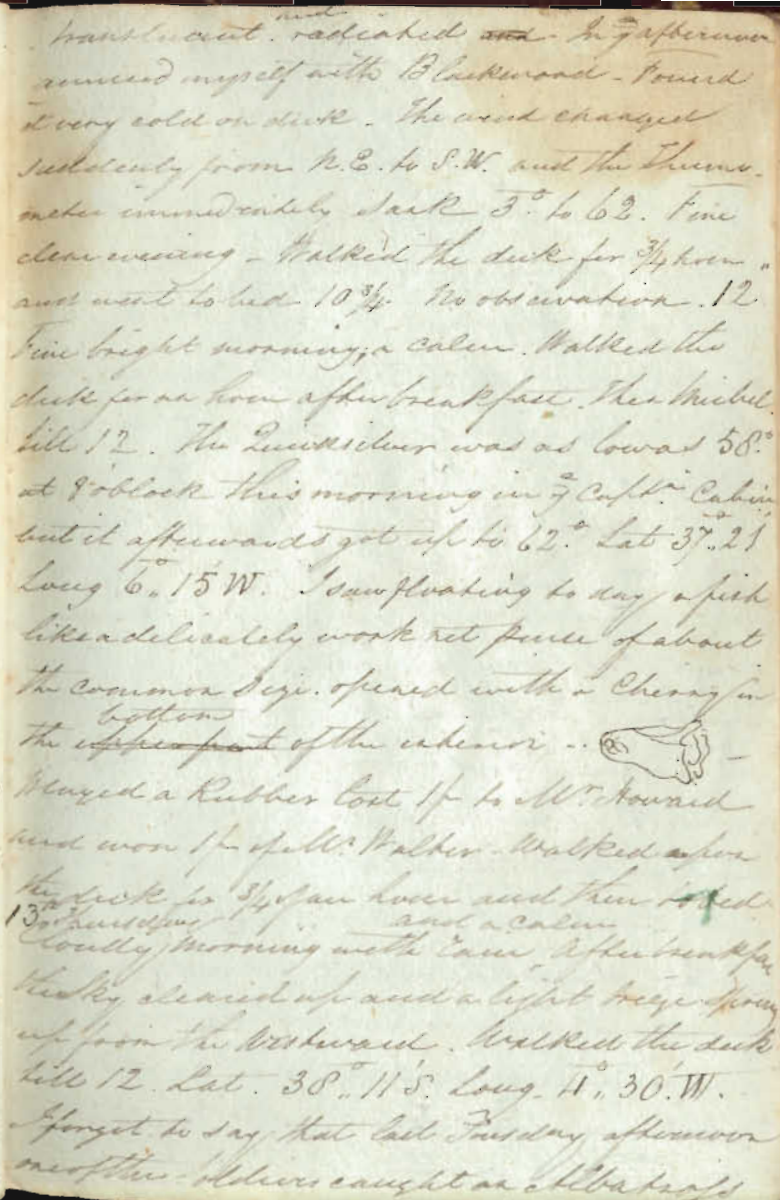 and
translucent. radiated and - In ye afternoon
amused myself with Blackwood - Found
it very cold on deck - The wind changed
suddenly from N.E. to S.W. and the Thermo-
meter immediately sank 3° to 62. Fine
clear evening - Walked the deck for 3/4 hour
and went to bed 10 3/4. No observation. 12
Fine bright morning, a calm. Walked the
deck for an hour after breakfast. Then
till 12. The Quicksilver was as low as 58°
at 8 o'clock this morning in ye Captn. Cabin
but it afterwards got up to 62°. Lat 37°..21
Long 6°.. 15 W. I saw floating to day a fish
like a delicately work net purse of about
the common size. opened with a Cherry in
bottom
the upper part of the interior - ..
Played a Rubber Lost 1/- to Mr. Howard
and won 1/- of Mr. Walked upon
the deck for 3/4 of an hour and then
13th Thursday and a calm
Cloudy morning with rain. After breakfast
the sky cleared up and a light breeze sprung
up from the Westward. Walked the deck
till 12. Lat. 38°.. 11' S. Long. 4°.. 30'. W.
I forgot to say that last Tuesday afternoon
one of the soldiers caught an Albatross